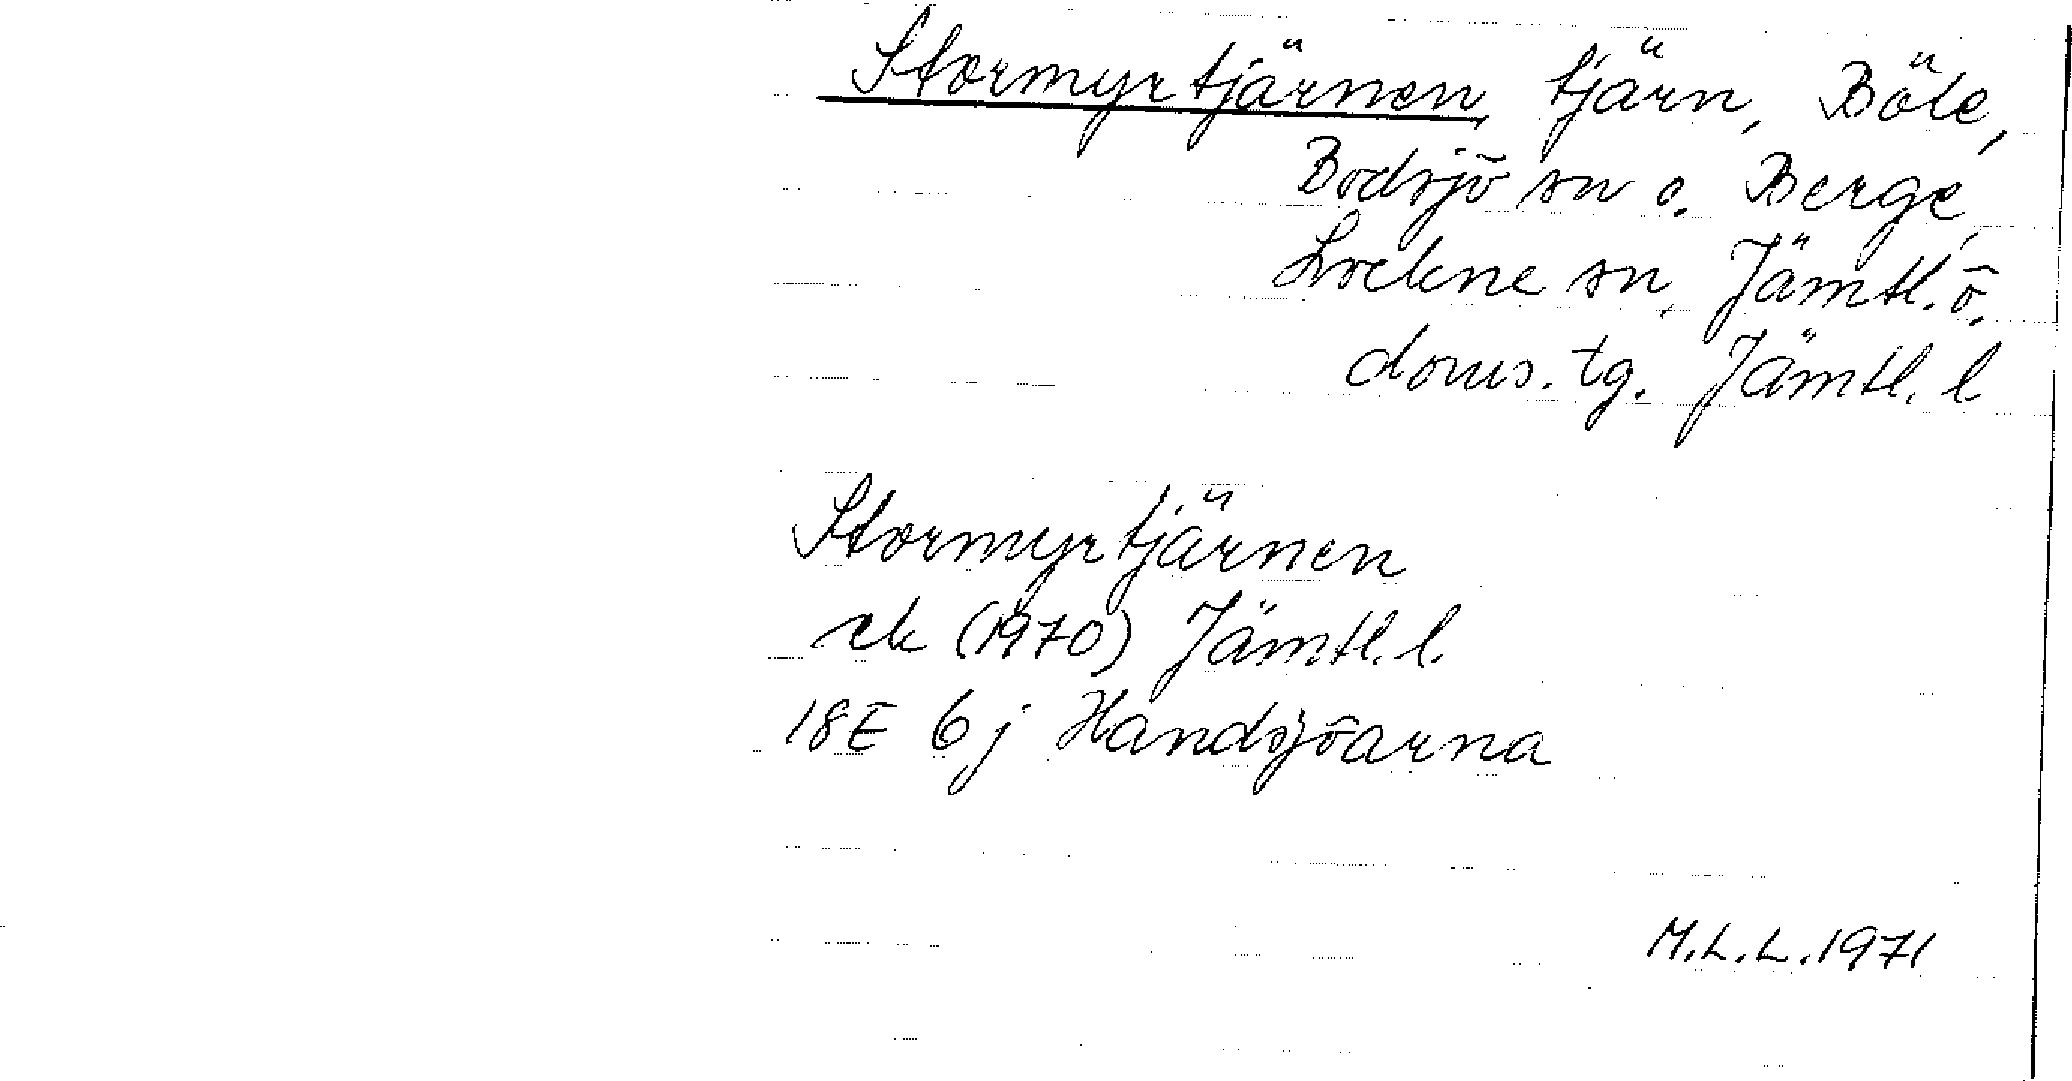 Stormyrtjärnen, tjärn, Böle,
Bodsjö sn o. Berge,
Lockne sn, Jämtl. ö.
doms. tg. Jämtl. l
Stormyrtjärnen
ek (1970) Jämtl. l.
18E 6j Handsjöarna
M.L.L. 1971